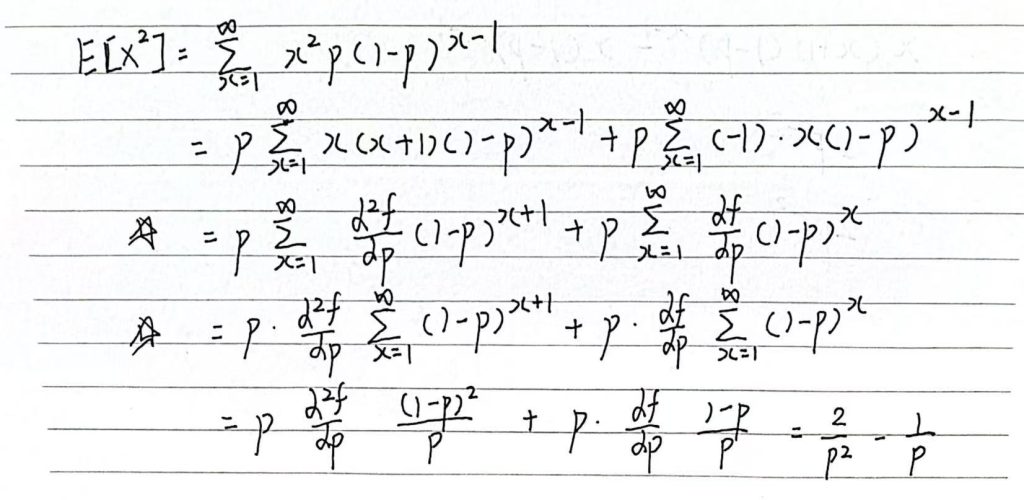 E[X²] = ∑_{x=1}^{∞} x² p (1-p)^{x-1}
= p ∑_{x=1}^{∞} x(x+1)(1-p)^{x-1} + p ∑_{x=1}^{∞} (-1)·x(1-p)^{x-1}
☆ = p ∑_{x=1}^{∞} \frac{d²f}{dp} (1-p)^{x+1} + p ∑_{x=1}^{∞} \frac{df}{dp} (1-p)^{x}
☆ = p · \frac{d²f}{dp} ∑_{x=1}^{∞} (1-p)^{x+1} + p · \frac{df}{dp} ∑_{x=1}^{∞} (1-p)^{x}
= p \frac{d²f}{dp} \frac{(1-p)²}{p} + p · \frac{df}{dp} \frac{1-p}{p} = \frac{2}{p²} - \frac{1}{p}